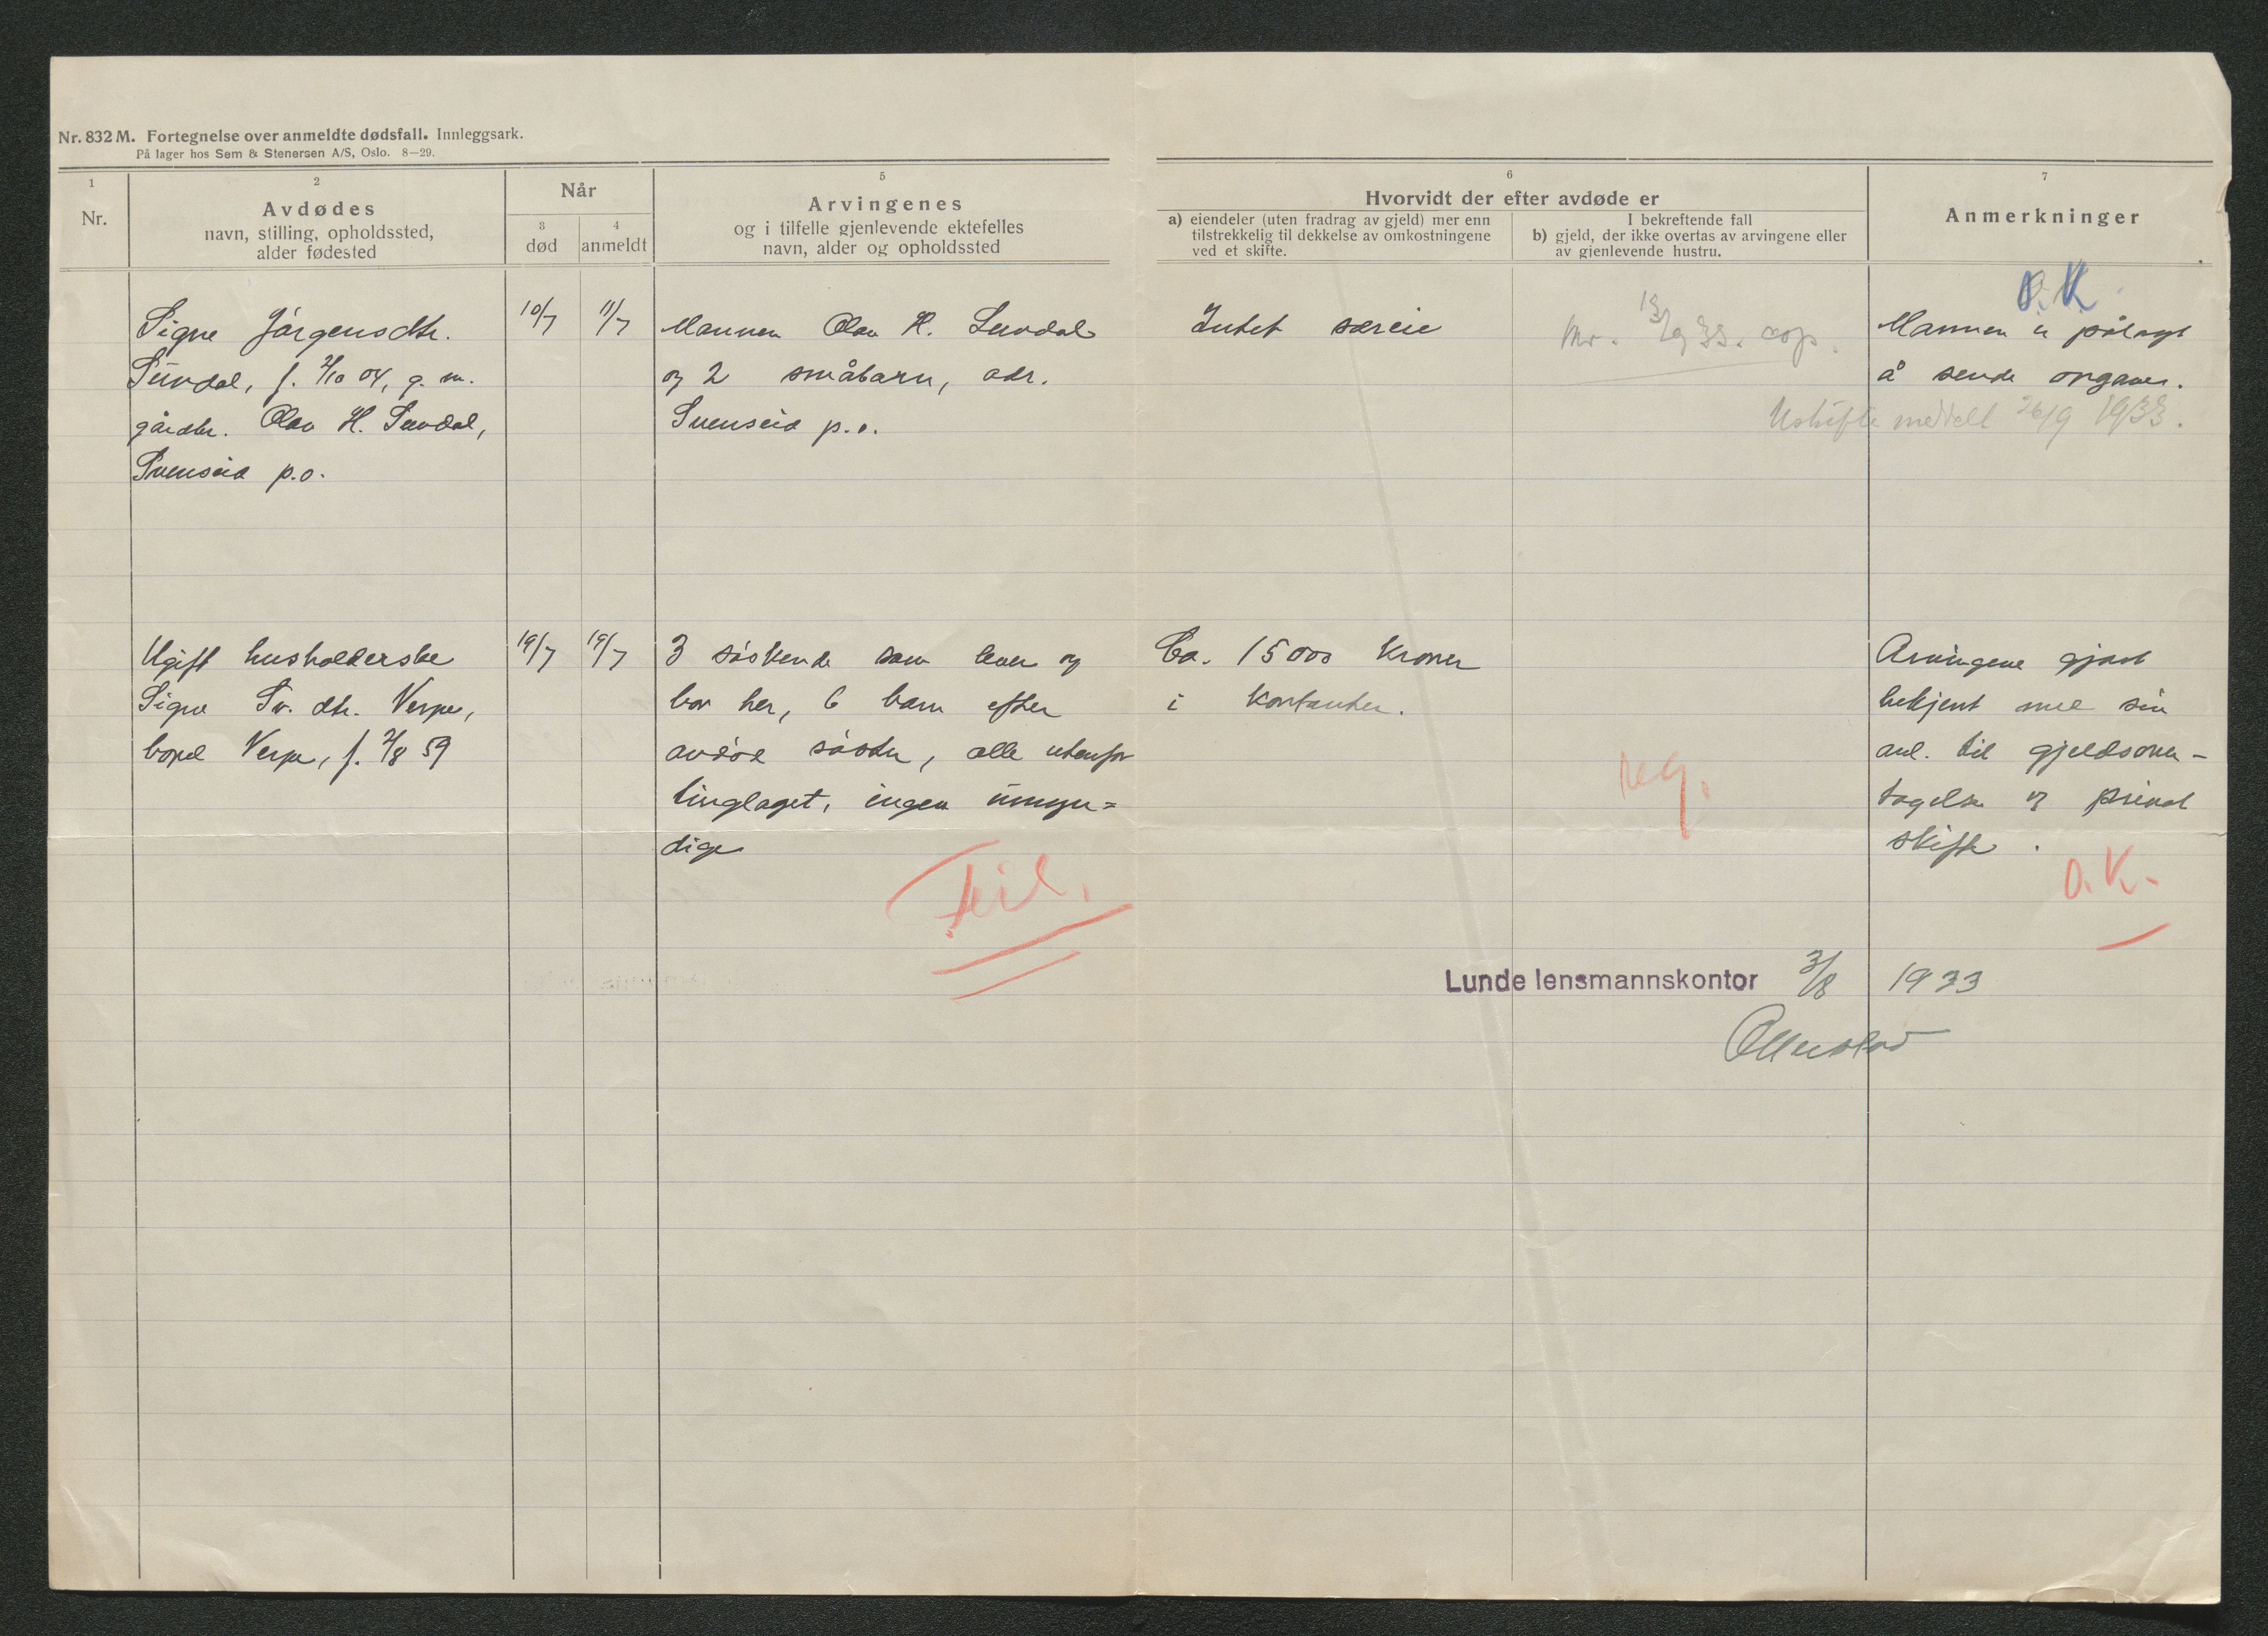 Nr. 832 M. Fortegnelse over anmeldte dødsfall. Innleggsark.
På lager hos Sem & Stenersen A/S, Oslo. 8—29.
1
Nr.
2
Avdødes
navn, stilling, opholdssted,
alder fødested
Når
3
død
4
anmeldt
5
Arvingenes
og i tilfelle gjenlevende ektefelles
navn, alder og opholdssted
6
Hvorvidt der efter avdøde er
a) eiendeler (uten fradrag av gjeld) mer enn
tilstrekkelig til dekkelse av omkostningene
ved et skifte.
I bekreftende fall
b) gjeld, der ikke overtas av arvingene eller
av gjenlevende hustru.
7
Anmerkninger
Signe Jørgensdtr.
Sundal, f. 2/10 04, g. m.
gårdbr. Olav H. Sundal,
Svenseid p.o.
10/7
11/7
Mannen Olav H. Sundal
og 2 småbarn, adr.
Svenseid p.o.
Intet særeie
13/9 33.
O.K.
Mannen er pålagt
å sende opgaver.
Uskifte meddelt 26/9 1933.
Ugift husholderske
Signe Sv. dtr. Verpe,
bopel Verpe, f. 2/8 59
19/7
19/7
3 søskende som lever og
bor her, 6 barn efter
avdød søster, alle utenfor
tinglaget, ingen umyn=
dige
Feil.
Ca. 15000 kroner
i kontanter.
reg.
Arvingene gjort
bekjent med sin
anl. til gjeldsover-
tagelse og privat
skifte.
O.K.
Lunde lensmannskontor 3/8 1933